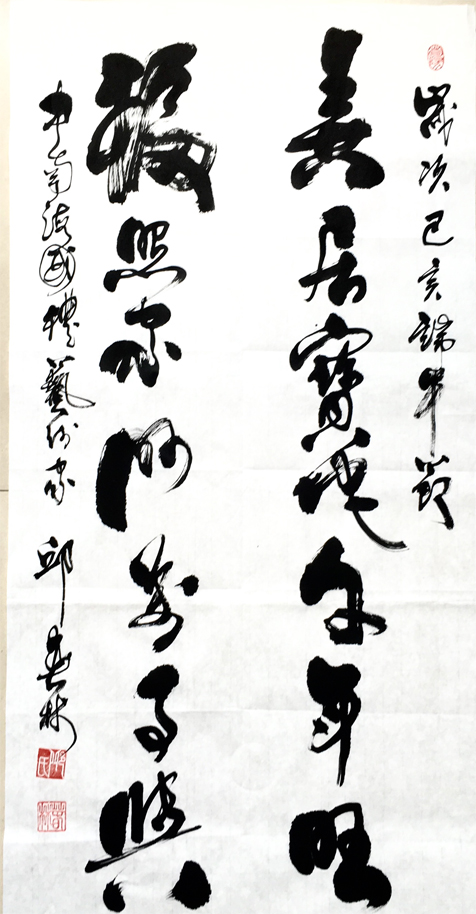 歲次己亥端午節
美居寶地年年旺
福照家門萬事興
中南海國禮藝術家 邱春林